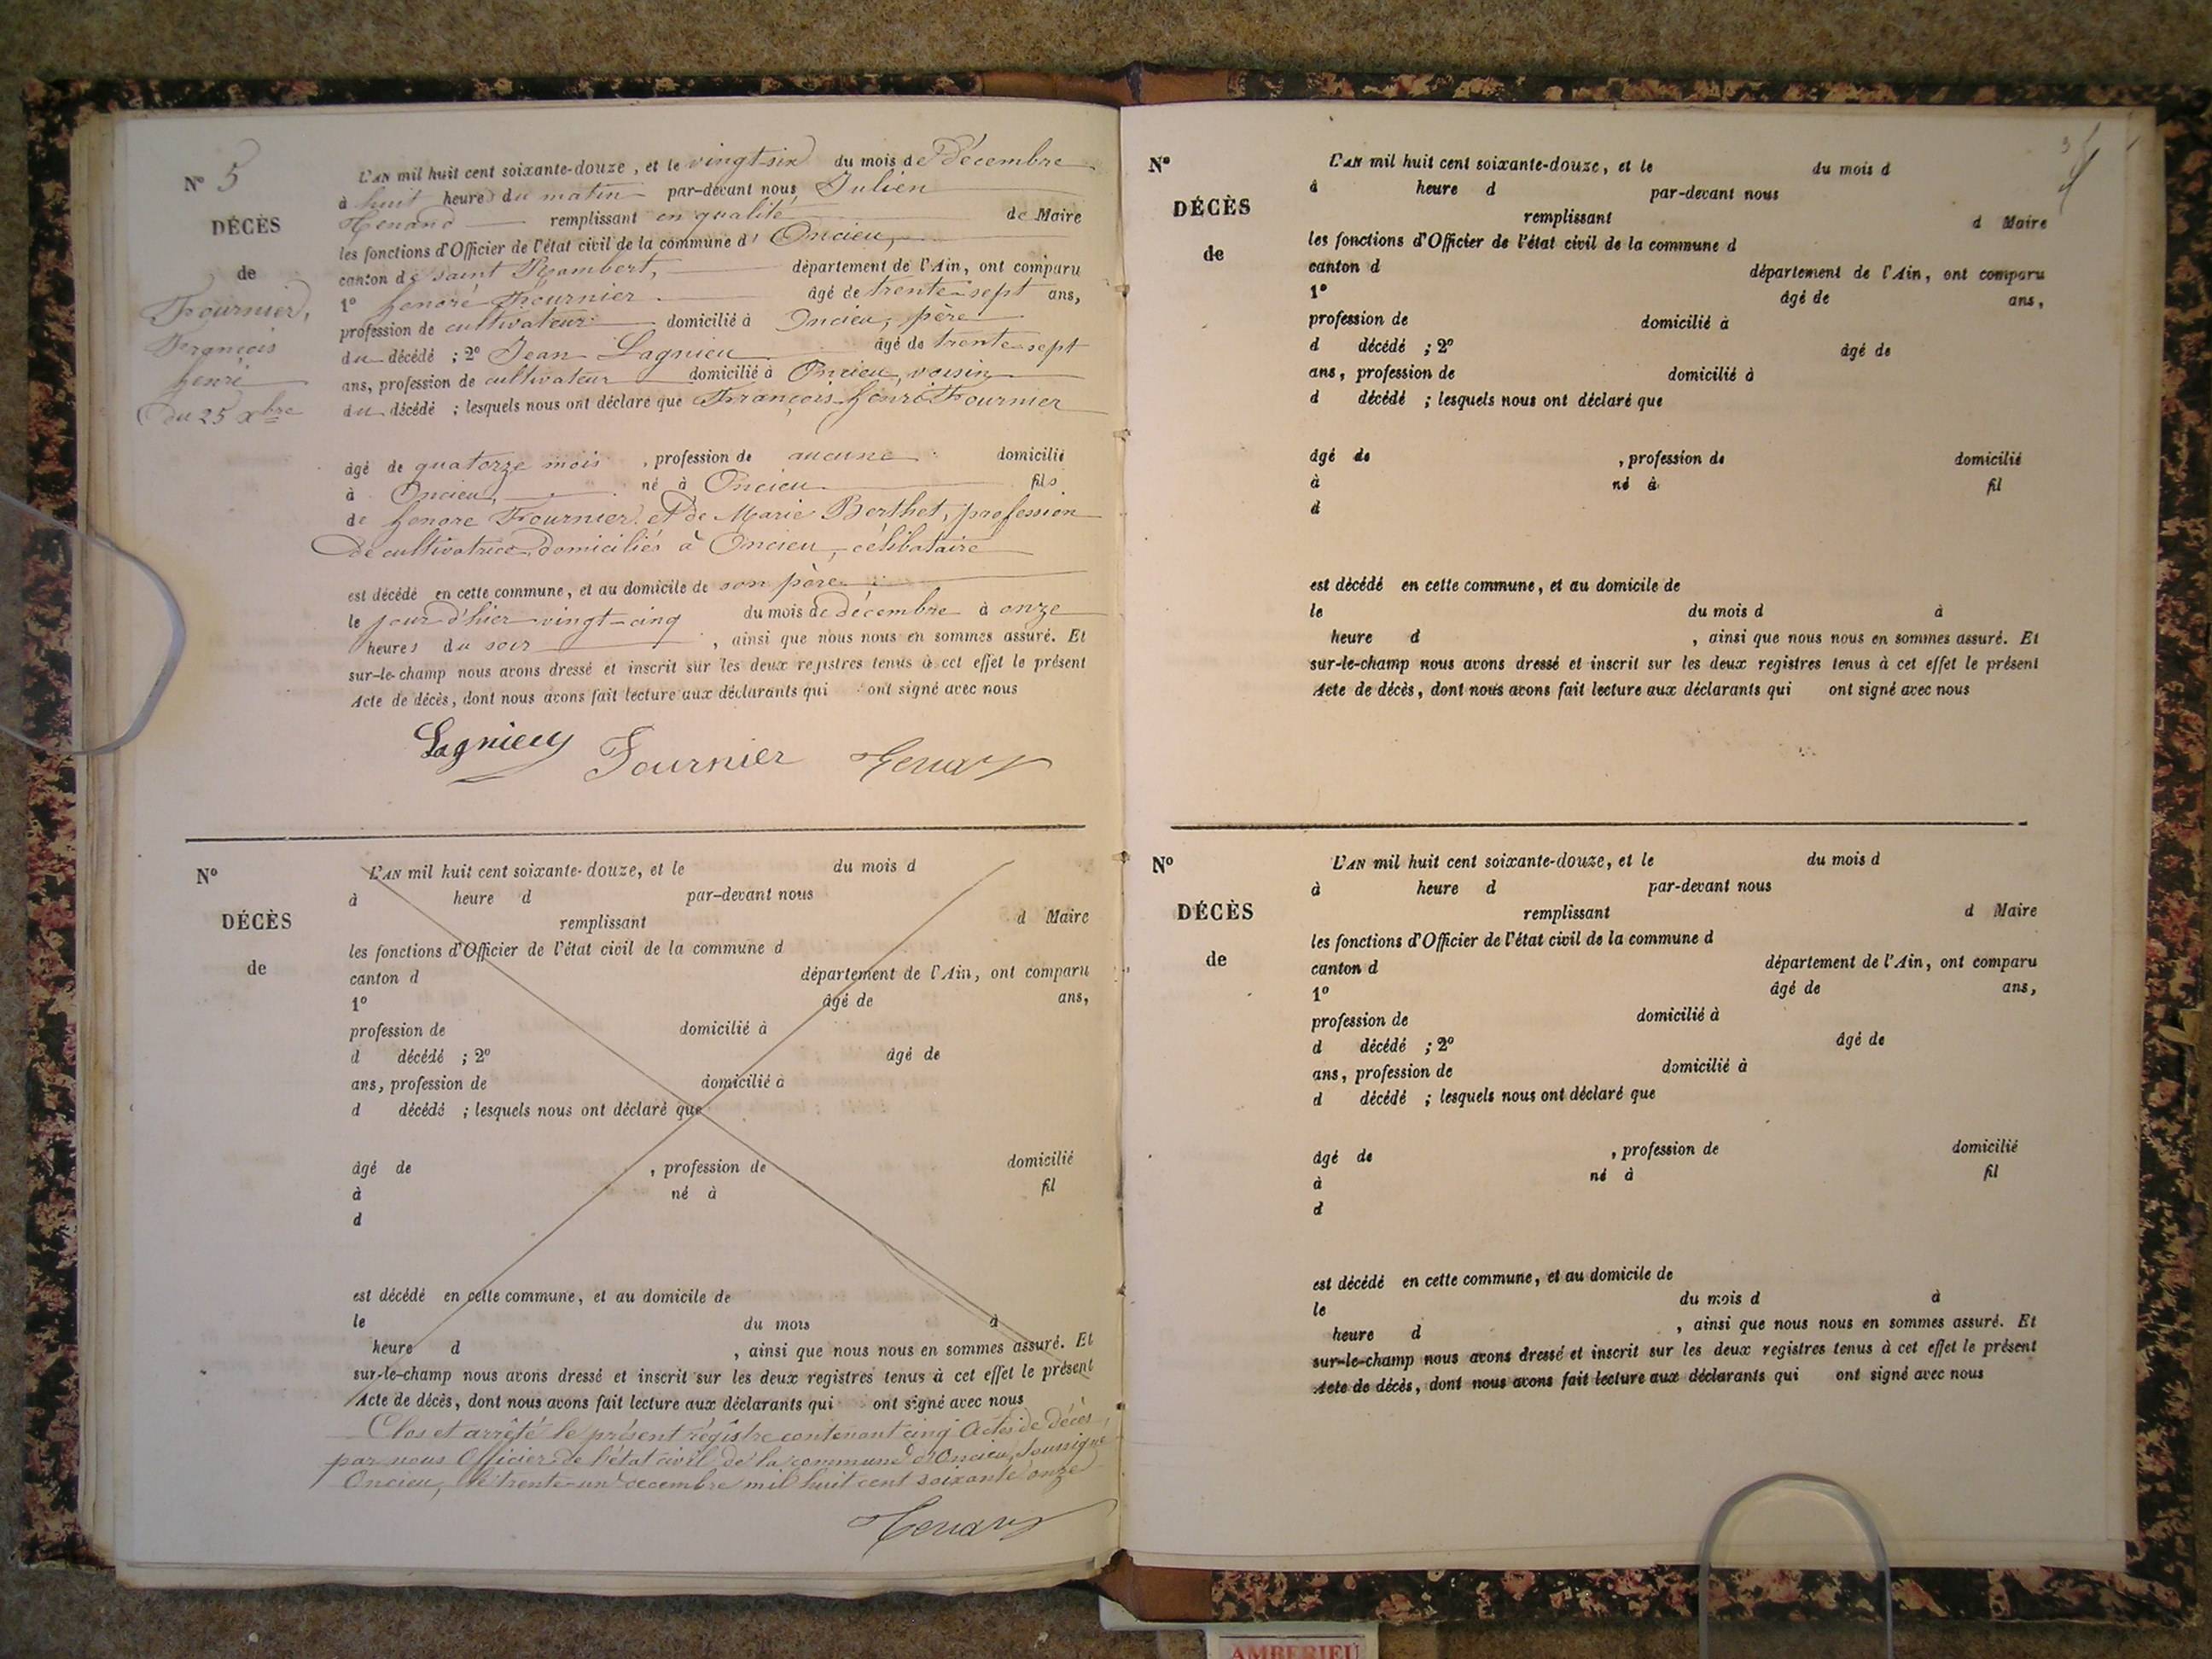 N° 5
DÉCÈS
de
Fournier,
François
henri
du 25 xbre
L'AN mil huit cent soixante-douze, et le vingt-six du mois de Décembre
à huit heures du matin par-devant nous Julien
Henand remplissant en qualité de Maire
les fonctions d'Officier de l'état civil de la commune d' Oncieu,
canton de saint Rambert, département de l'Ain, ont comparu
1° honoré Fournier âgé de trente-sept ans,
profession de cultivateur domicilié à Oncieu, père
du décédé ; 2° Jean Lagnieu âgé de trente-sept
ans, profession de cultivateur domicilié à Oncieu, voisin
du décédé ; lesquels nous ont déclaré que François henri Fournier
âgé de quatorze mois , profession de aucune domicilié
à Oncieu, né à Oncieu fils
de honore Fournier et de Marie Berthet, profession
de cultivatrice, domiciliés à Oncieu, célibataire
est décédé en cette commune, et au domicile de son père
le jour d'hier vingt-cinq du mois de décembre à onze
heures du soir , ainsi que nous nous en sommes assuré. Et
sur-le-champ nous avons dressé et inscrit sur les deux registres tenus à cet effet le présent
Acte de décès, dont nous avons fait lecture aux déclarants qui ont signé avec nous
Lagnieu Fournier
N°
DÉCÈS
de
L'AN mil huit cent soixante-douze, et le du mois d
à heure d par-devant nous
remplissant d Maire
les fonctions d'Officier de l'état civil de la commune d
canton d département de l'Ain, ont comparu
1° âgé de ans,
profession de domicilié à
d décédé ; 2° âgé de
ans, profession de domicilié à
d décédé ; lesquels nous ont déclaré que
âgé de , profession de domicilié
à né à fil
d
est décédé en cette commune, et au domicile de
le du mois à
heure d , ainsi que nous nous en sommes assuré. Et
sur-le-champ nous avons dressé et inscrit sur les deux registres tenus à cet effet le présent
Acte de décès, dont nous avons fait lecture aux déclarants qui ont signé avec nous
Clos et arrêté le présent régistre contenant cinq Actes de décès,
par nous Officier de l'état civil de la commune d'Oncieu, soussigné
Oncieu, le trente-un décembre mil huit cent soixante onze
N°
DÉCÈS
de
L'AN mil huit cent soixante-douze, et le du mois d
à heure d par-devant nous
remplissant d Maire
les fonctions d'Officier de l'état civil de la commune d
canton d département de l'Ain, ont comparu
1° âgé de ans,
profession de domicilié à
d décédé ; 2° âgé de
ans, profession de domicilié à
d décédé ; lesquels nous ont déclaré que
âgé de , profession de domicilié
à né à fil
d
est décédé en cette commune, et au domicile de
le du mois d à
heure d , ainsi que nous nous en sommes assuré. Et
sur-le-champ nous avons dressé et inscrit sur les deux registres tenus à cet effet le présent
Acte de décès, dont nous avons fait lecture aux déclarants qui ont signé avec nous
N°
DÉCÈS
de
L'AN mil huit cent soixante-douze, et le du mois d
à heure d par-devant nous
remplissant d Maire
les fonctions d'Officier de l'état civil de la commune d
canton d département de l'Ain, ont comparu
1° âgé de ans,
profession de domicilié à
d décédé ; 2° âgé de
ans, profession de domicilié à
d décédé ; lesquels nous ont déclaré que
âgé de , profession de domicilié
à né à fil
d
est décédé en cette commune, et au domicile de
le du mois d à
heure d , ainsi que nous nous en sommes assuré. Et
sur-le-champ nous avons dressé et inscrit sur les deux registres tenus à cet effet le présent
Acte de décès, dont nous avons fait lecture aux déclarants qui ont signé avec nous
AMBERIEU